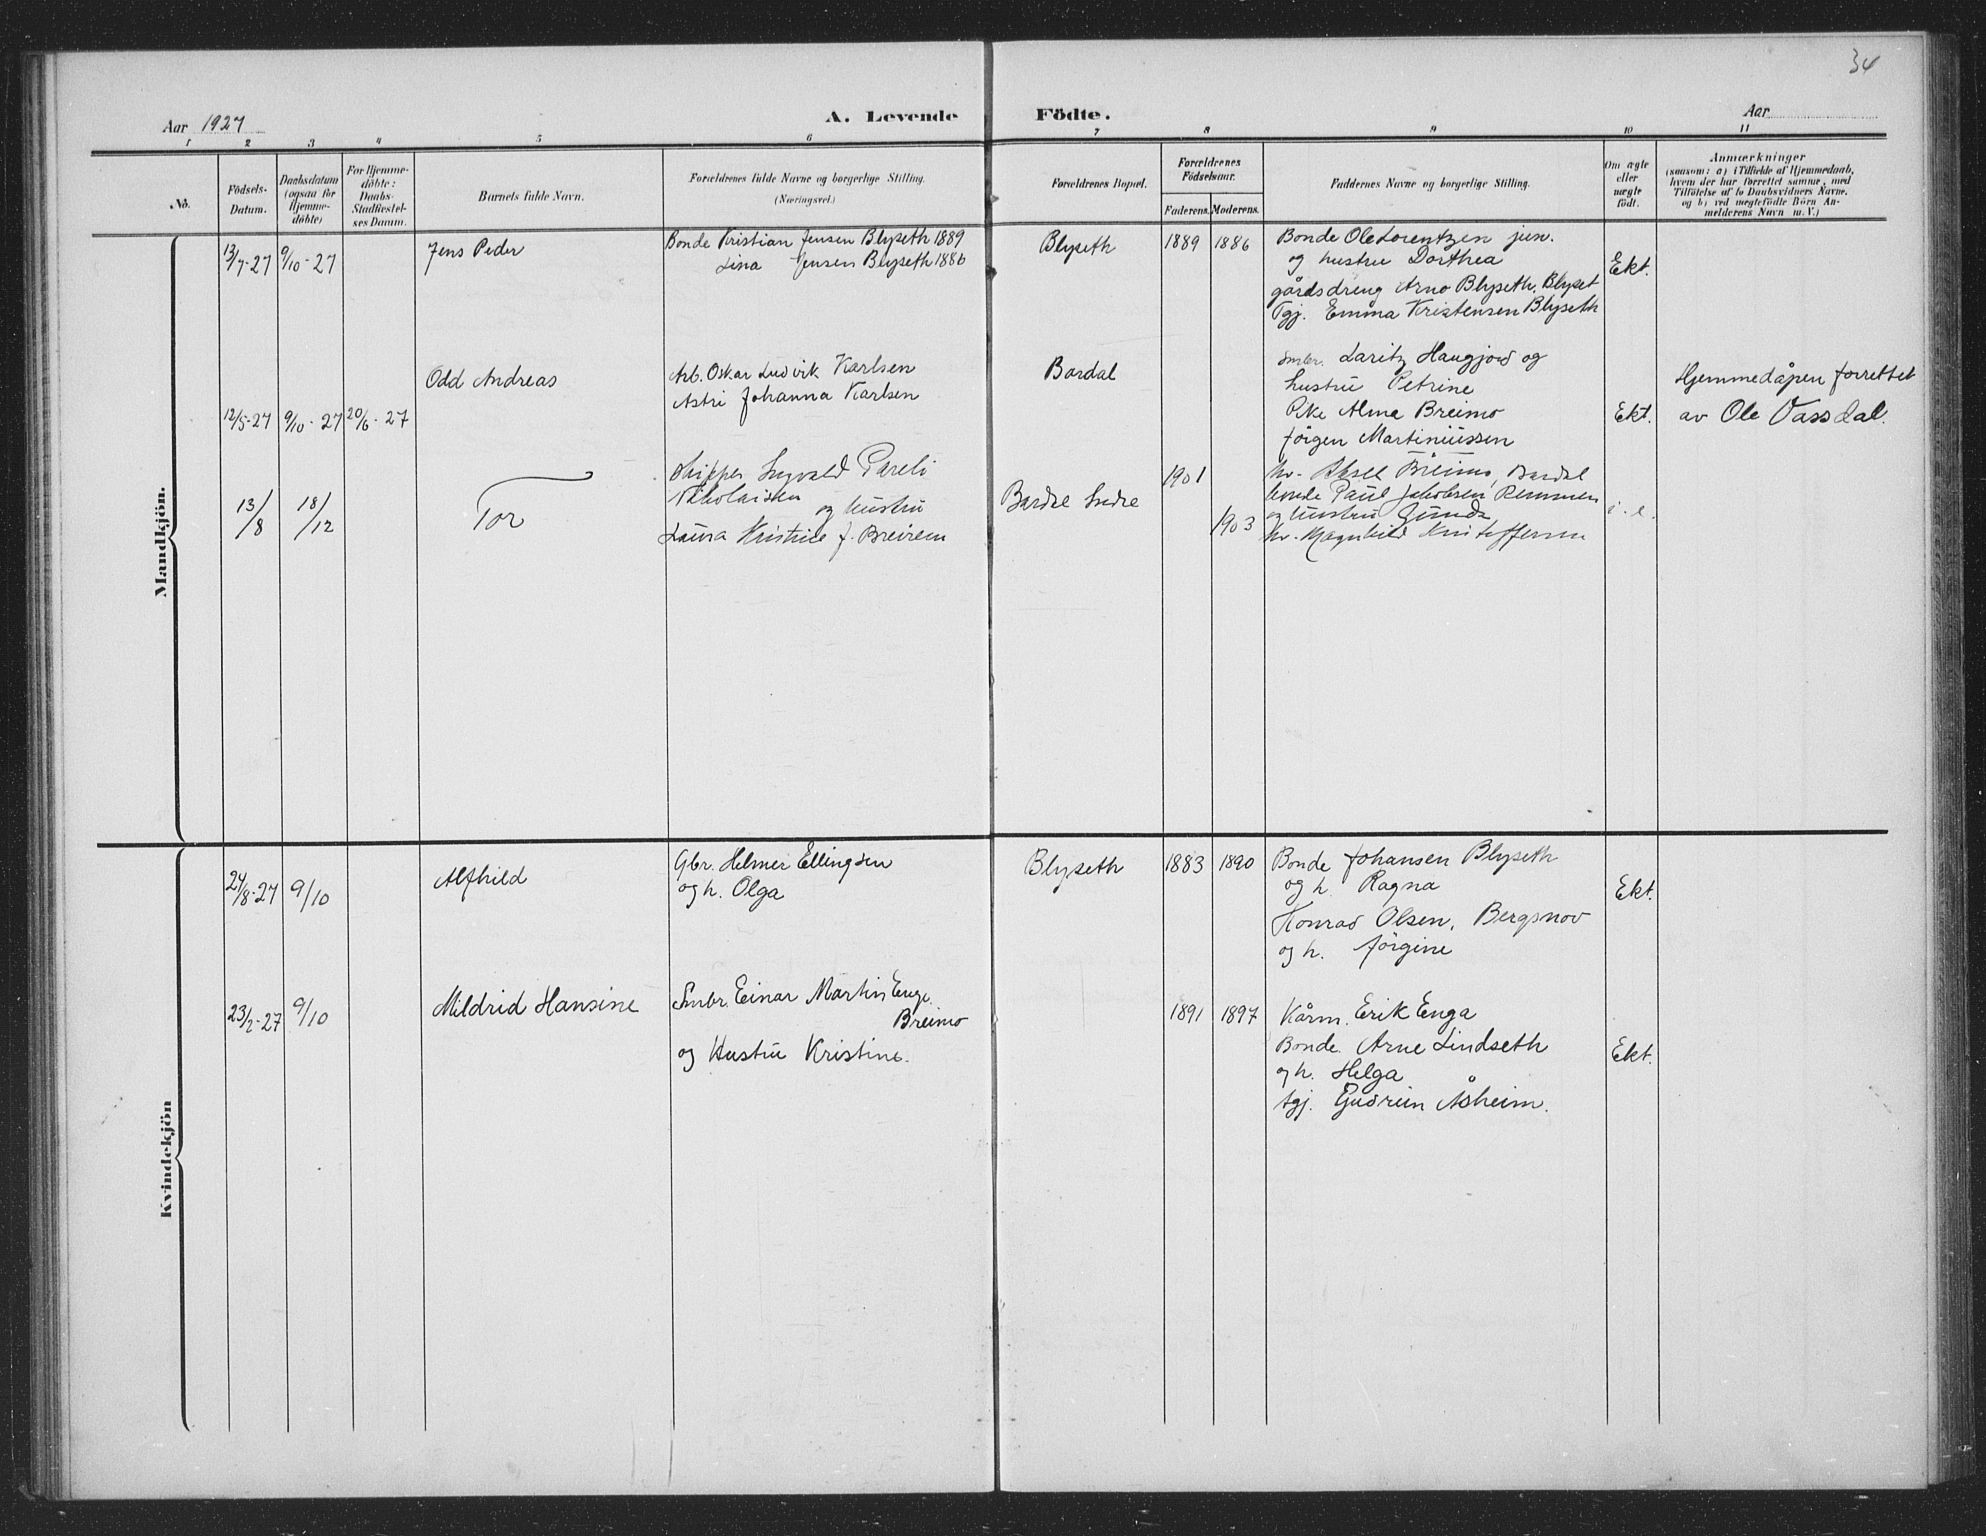 34
Aar 1927
A. Levende Födte.
Aar
1 2 3 4 5 6 7 8 9 10 11
No.
Födsels-Datum.
Daabsdatum (ogsaa for Hjemmedöbte)
For Hjemmedöbte: Daabs-Stadfæstelses Datum.
Barnets fulde Navn.
Forældrenes fulde Navne og borgerlige Stilling.
(Næringsvei.)
Forældrenes Bopæl.
Forældrenes Födselsaar.
Faderens. Moderens.
Faddernes Navne og borgerlige Stilling.
Om ægte eller uægte födt.
Anmærkninger
(saasom: a) i Tilfælde af Hjemmedaab,
hvem der har forrettet samme, med
Tilföielse af to Daabsvidners Navne,
og b) ved uægtefödte Börn Anmelderens Navn m. V.)
Mandkjön.
13/7-27 9/10-27 Jens Peder
Bonde Kristian Jensen Blyseth 1889
Lina Jensen Blyseth 1886
Blyseth 1889 1886
Bonde Ole Lorentzen jun.
og hustru Dorthea
gårdsdreng Arno Blyseth, Blyset
Tgj. Emma Kristensen Blyseth
Ekt.
12/5-27 9/10-27 20/6-27 Odd Andreas
Arb. Oskar Ludvik Karlsen
Astri Johanna Karlsen
Bardal
Smbr. Laritz Haugjord og
hustru Petrine
Pike Alma Breimo
Jörgen Martiniussen
Ekt.
Hjemmedåpen forrettet
av Ole Vassdal.
13/8 18/12 Tor
Skipper Ingvald Pareli
Nikolaisen og hustru
Laura Kristine f.
Bardal Indre 1901 1903
Aksel Breimo, Bardal
bonde Paul Jakobsen
og hustru
Magnhild Kristoffersen
i. e.
Kvindekjön
24/8-27 9/10 Alfhild
Gbr. Helmer Ellingsen
og h. Olga
Blyseth 1883 1890
Bonde Johansen Blyseth
og h. Ragna
Konrad Olsen, Bergsnov
og h. Jörgine
Ekt.
23/2-27 9/10 Mildrid Hansine
Smbr. Einar Martin Enge
Breimo
og Hustru Kristine.
1891 1897
Kårm. Erik Enga
Bonde Arne Lindseth
og h. Helga
tgj. Gudrun Åsheim.
Ekt.